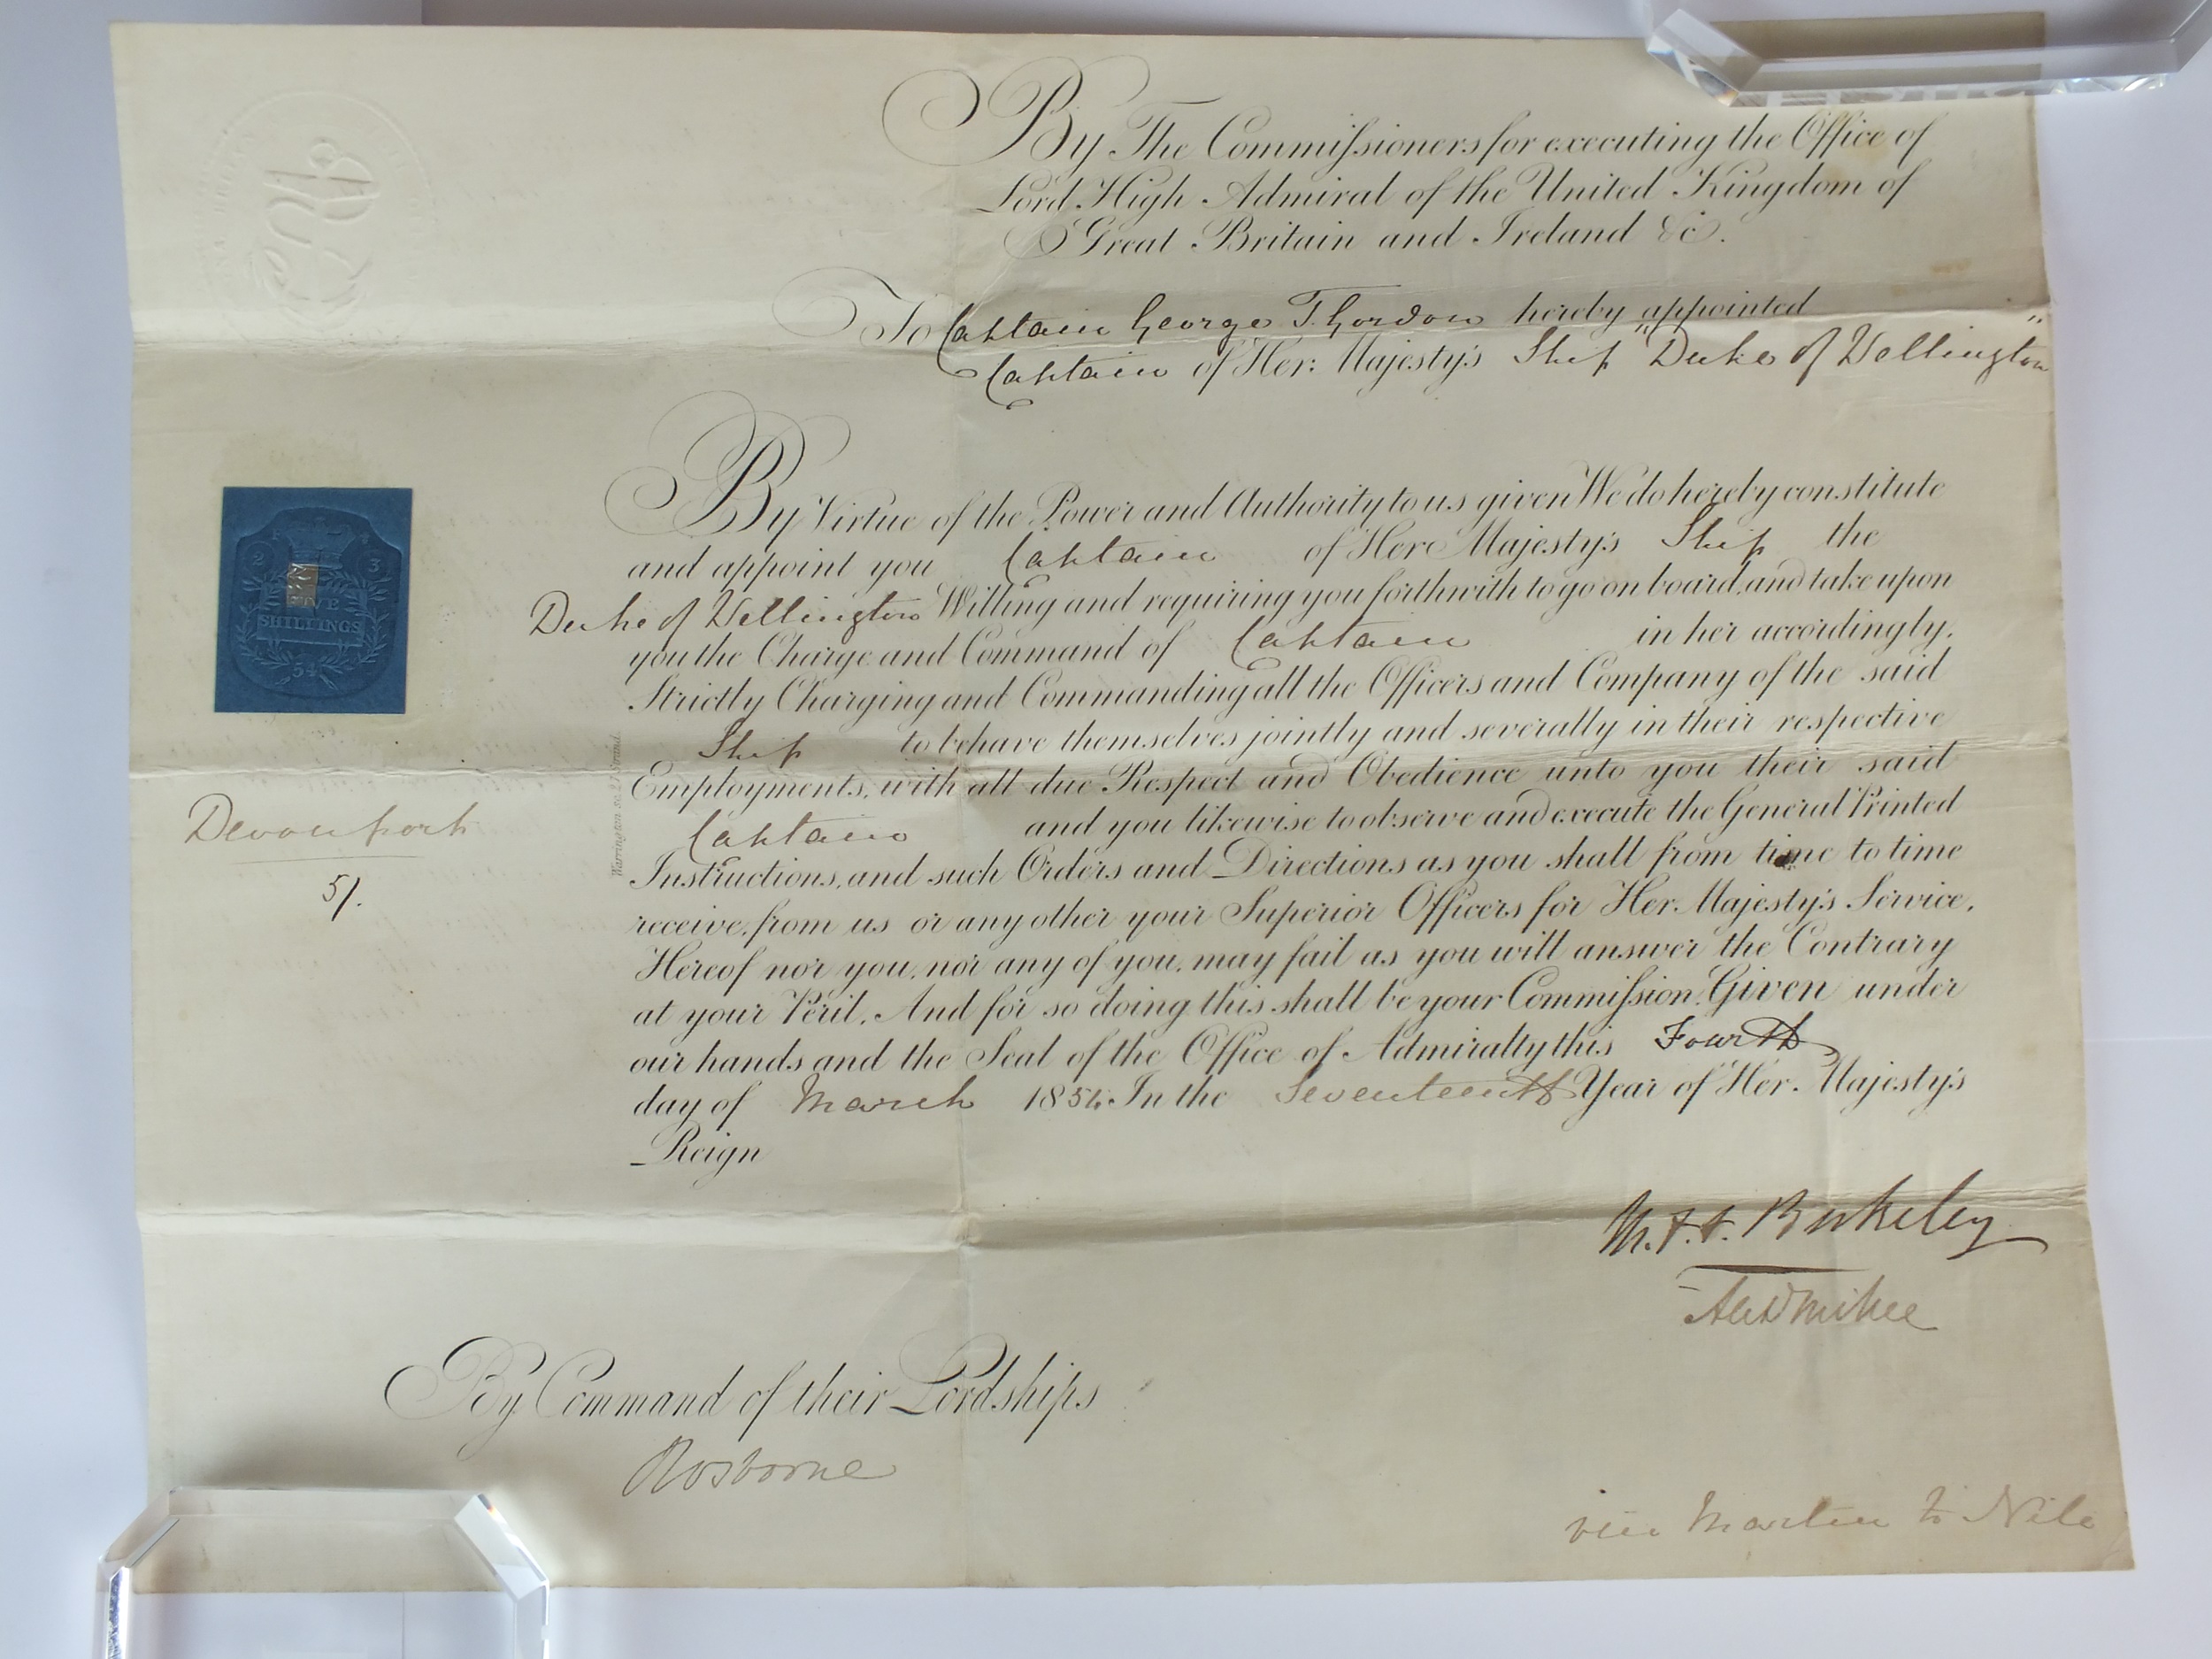 By The Commissioners for executing the Office of
Lord High Admiral of the United Kingdom of
Great Britain and Ireland &c.
To Captain George T. Gordon hereby appointed
Captain of Her Majesty's Ship "Duke of Wellington"
By Virtue of the Power and Authority to us given We do hereby constitute
and appoint you Captain of Her Majesty's Ship the
Duke of Wellington Willing and requiring you forthwith to go on board and take upon
you the Charge and Command of Captain in her accordingly.
Strictly Charging and Commanding all the Officers and Company of the said
Ship to behave themselves jointly and severally in their respective
Employments, with all due Respect and Obedience unto you their said
Captain and you likewise to observe and execute the General Printed
Instructions, and such Orders and Directions as you shall from time to time
receive from us or any other your Superior Officers for Her Majesty's Service.
Hereof nor you, nor any of you, may fail as you will answer the Contrary
at your Peril. And for so doing this shall be your Commission. Given under
our hands and the Seal of the Office of Admiralty this Fourth
day of March 1854 In the Seventeenth Year of Her Majesty's
Reign
2 3
FIVE
SHILLINGS
54
Devonport
5/.
Warrington Strand
M.F.F. Berkeley
Alex Milne
By Command of their Lordships
R Osborne
vice Martin to Nile